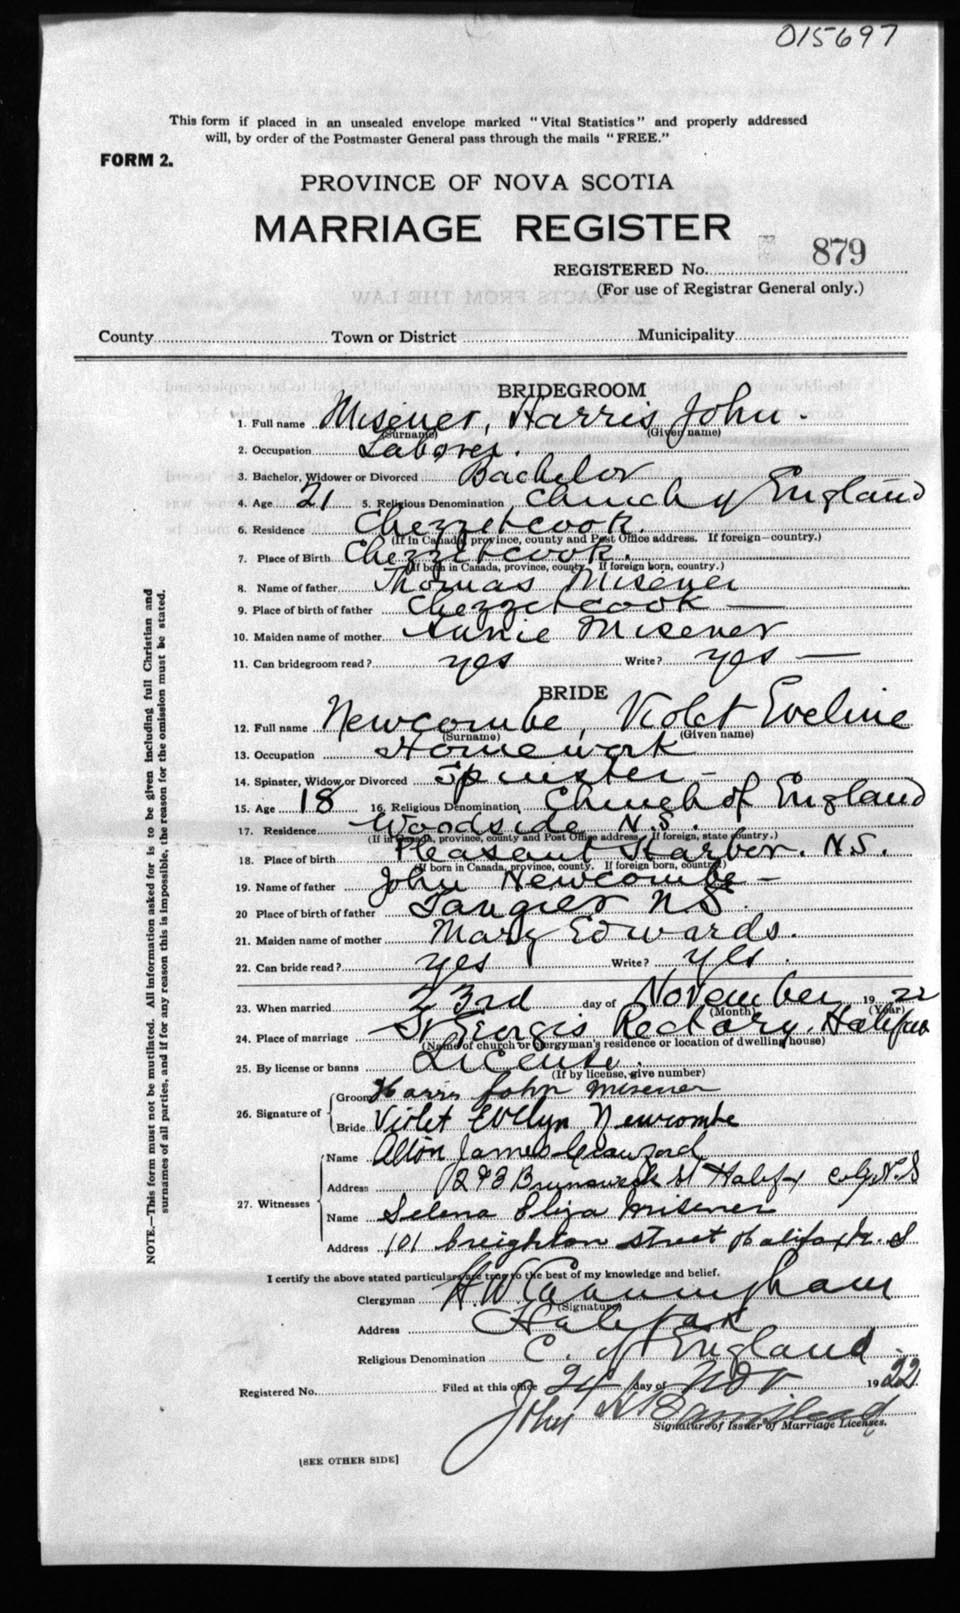 015697
This form if placed in an unsealed envelope marked "Vital Statistics" and properly addressed
will, by order of the Postmaster General pass through the mails "FREE."
FORM 2.
PROVINCE OF NOVA SCOTIA
MARRIAGE REGISTER
REGISTERED No. 879
(For use of Registrar General only.)
County Town or District Municipality
BRIDEGROOM
1. Full name Misener, Harris John.
(Surname) (Given name)
2. Occupation Laborer.
3. Bachelor, Widower or Divorced Bachelor
4. Age 21 5. Religious Denomination Church of England
6. Residence Chezzetcook.
(If in Canada, province, county and Post Office address. If foreign—country.)
7. Place of Birth Chezzetcook.
(If born in Canada, province, county. If foreign born, country.)
8. Name of father Thomas Misener
9. Place of birth of father Chezzetcook —
10. Maiden name of mother Annie Misener
11. Can bridegroom read? yes Write? yes —
BRIDE
12. Full name Newcombe, Violet Eveline
(Surname) (Given name)
13. Occupation Homework
14. Spinster, Widow or Divorced Spinster -
15. Age 18 16. Religious Denomination Church of England
17. Residence Woodside N.S.
(If in Canada, province, county and Post Office address. If foreign, state country.)
18. Place of birth Pleasant Harbor. N.S.
(If born in Canada, province, county. If foreign born, country.)
19. Name of father John Newcombe -
20 Place of birth of father Tangier N.S.
21. Maiden name of mother Mary Edwards.
22. Can bride read? yes Write? yes.
23. When married 23rd day of November 19 22
(Month) (Year)
24. Place of marriage St Georges Rectory, Halifax
(Name of church or clergyman's residence or location of dwelling house)
25. By license or banns License.
(If by license, give number)
26. Signature of Groom Harris John Misener
Bride Violet Evelyn Newcombe
27. Witnesses Name Alton James Crawford
Address 293 Brunswick St Halifax City N.S
Name Selena Eliza Misener
Address 101 Creighton street Halifax N. S
I certify the above stated particulars are true to the best of my knowledge and belief.
Clergyman H W Cunningham
(Signature)
Address Halifax
Religious Denomination C. of England
Registered No. Filed at this office 24 day of Nov 1922
John H
Signature of Issuer of Marriage Licenses.
[SEE OTHER SIDE]
NOTE.—This form must not be mutilated. All information asked for is to be given including full Christian and
surnames of all parties, and if for any reason this is impossible, the reason for the omission must be stated.